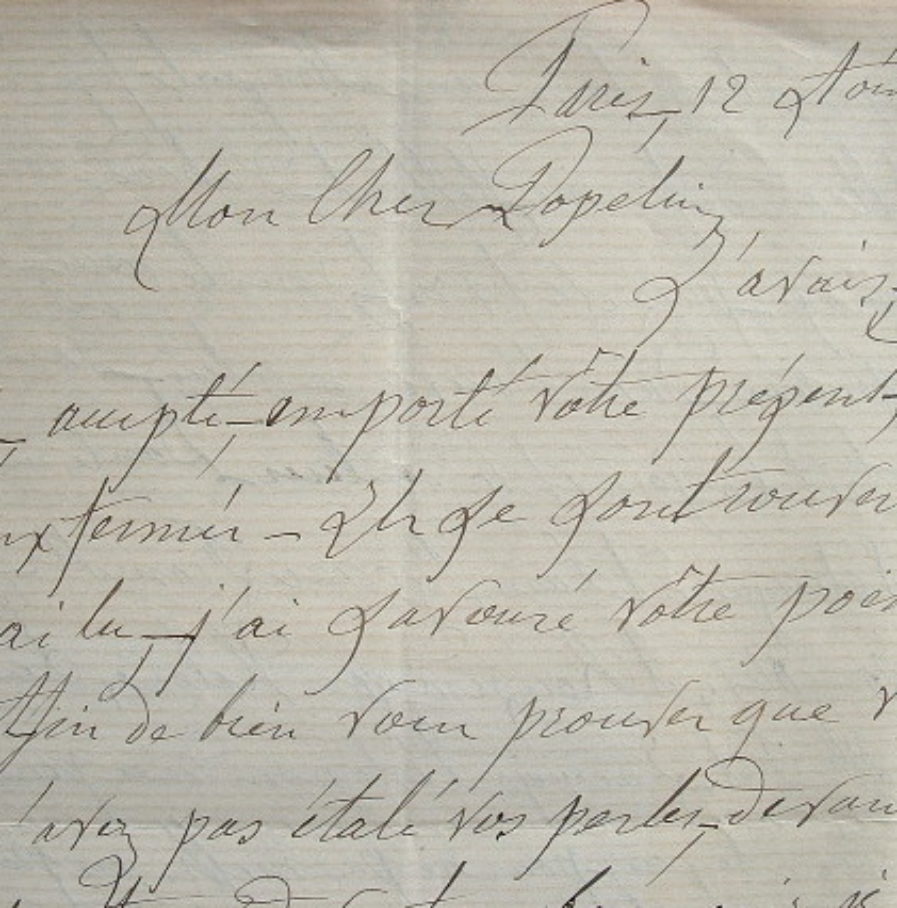 Paris, 12 Aou
Mon Cher Popelin,
J'avais,
accepté, emporté vôtre présent,
ux fermés – Ils se sont rouver
ai lu, j'ai savouré vôtre poè
Afin de bien vous prouver que v
'avez pas étalé vos perles, devan